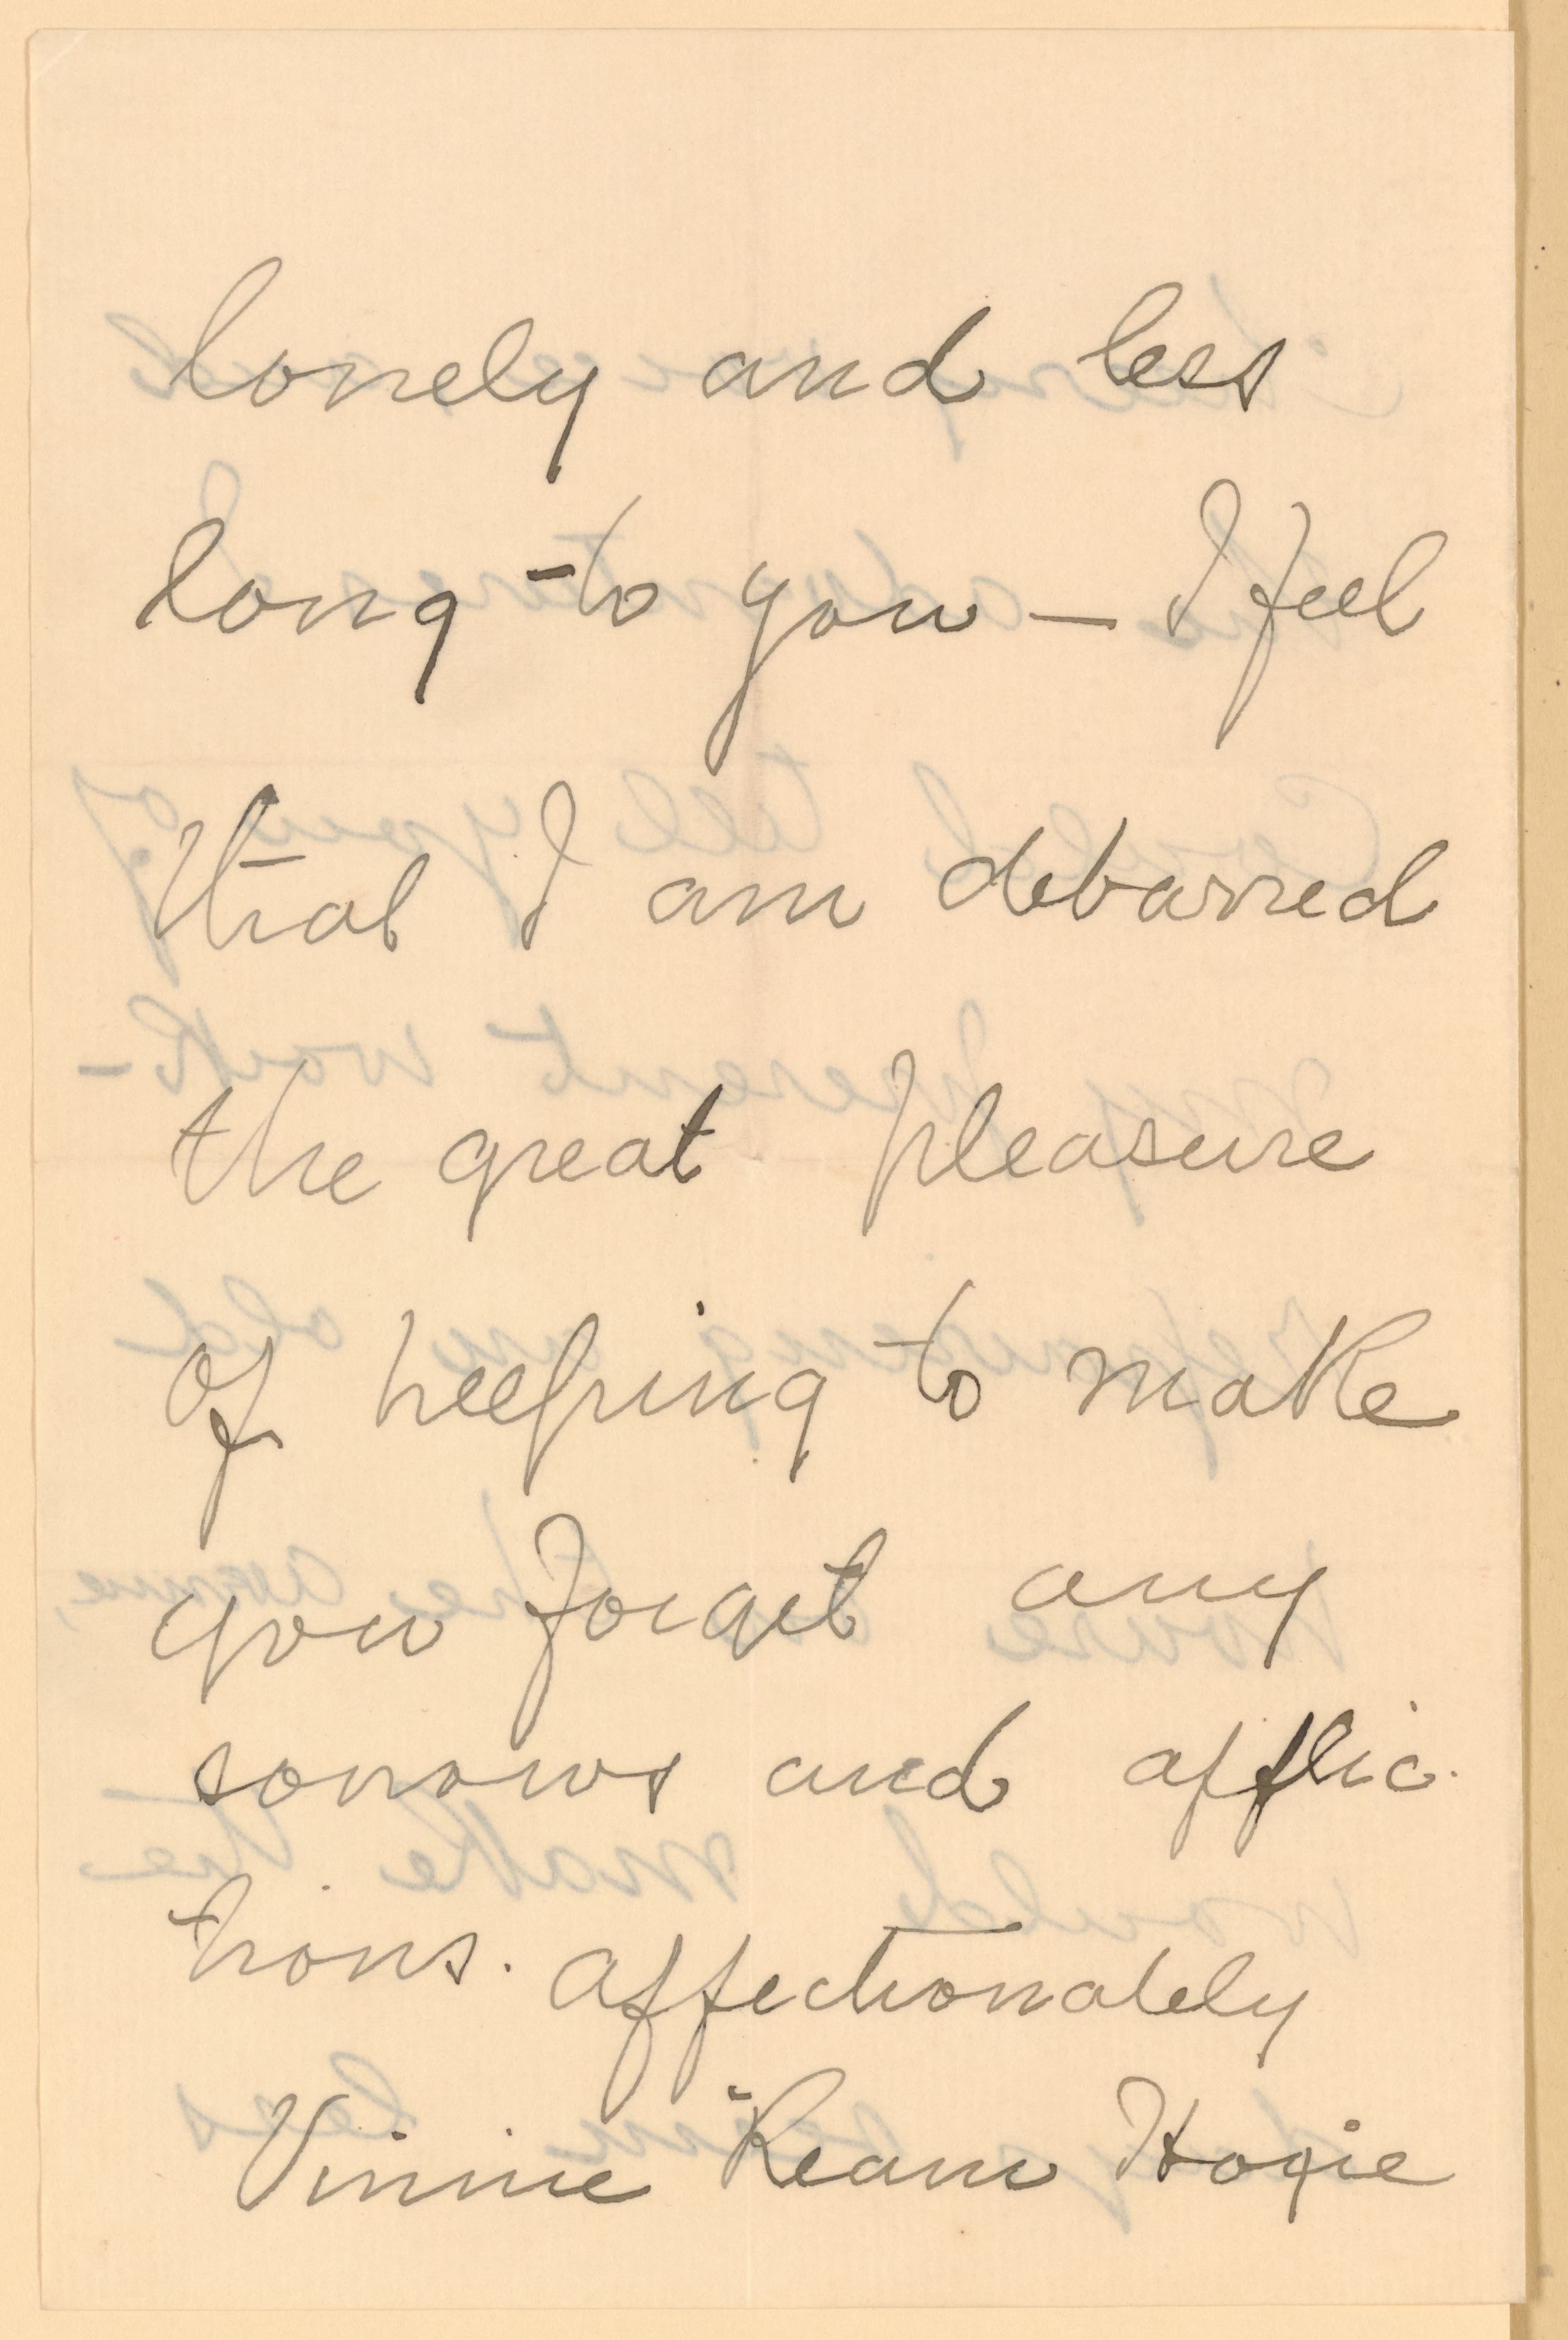 lonely and less
long to you — I feel
that I am debarred
the great pleasure
of helping to make
you forget any
sorrows and afflic-
tions. Affectionately
Vinnie Ream Hoxie